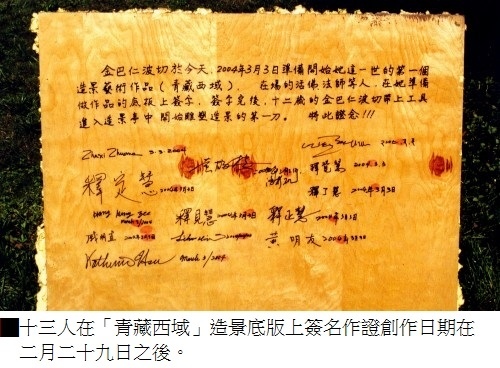 金巴仁波切於今天，2004年3月3日準備開始她這一世的第一個
造景藝術作品（青藏西域），在場的活佛法師等人，在她準備
做作品的底板上簽字，簽字完後，十二歲的金巴仁波切帶上工具
進入造景亭中開始雕塑造景的第一刀。 特此證念!!!
Zhaxi Zhuoma
釋覺慧 2004.3.3
釋定慧 2004年3月3日
釋了慧 2004年3月3日
釋見慧 2004年3月3日 釋正慧 2004年3月3日
黃明友 2004年3月3日
March 3/2004
十三人在「青藏西域」造景底版上簽名作證創作日期在
二月二十九日之後。